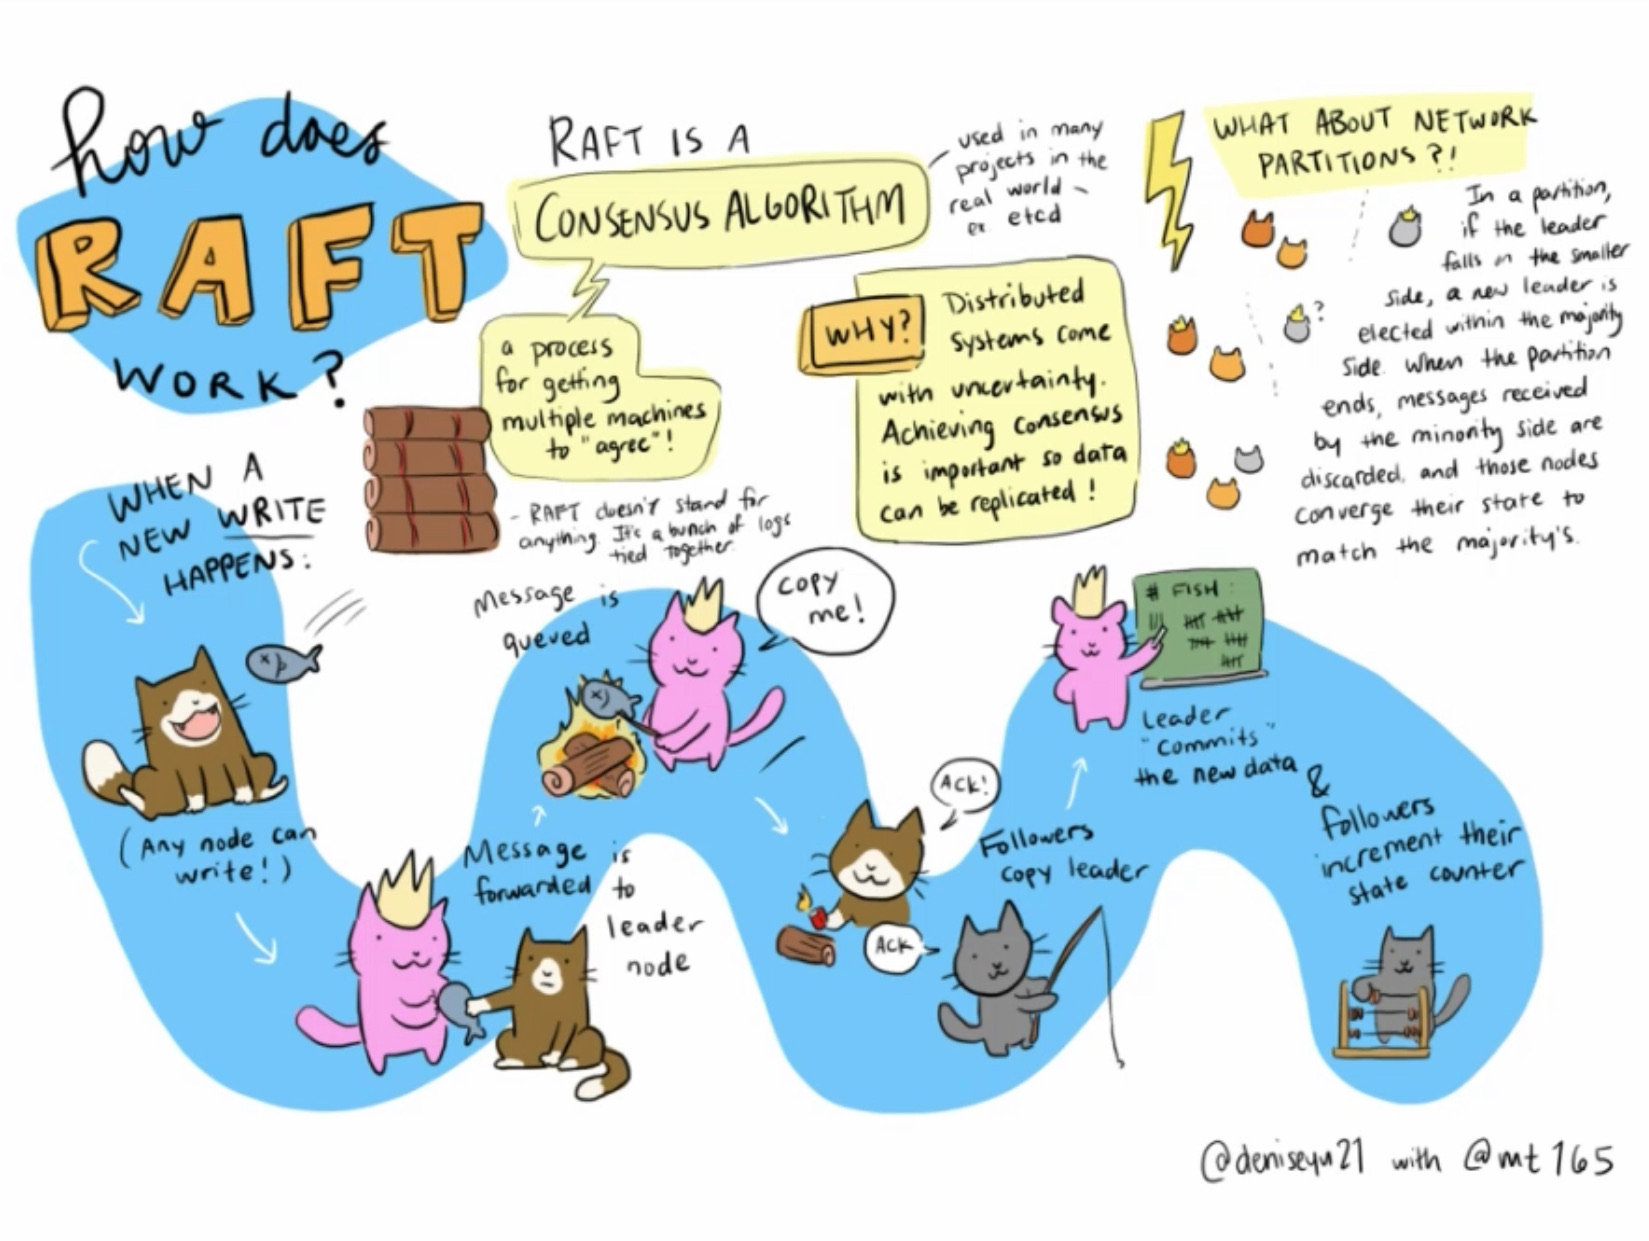 how does
RAFT
WORK?
RAFT IS A
CONSENSUS ALGORITHM
used in many
projects in the
real world -
ex. etcd
a process
for getting
multiple machines
to "agree"!
- RAFT doesn't stand for
anything. It's a bunch of logs
tied together.
WHY?
Distributed
Systems come
with uncertainty.
Achieving consensus
is important so data
can be replicated!
WHAT ABOUT NETWORK
PARTITIONS?!
In a partition,
if the leader
falls on the smaller
side, a new leader is
elected within the majority
side. When the partition
ends, messages received
by the minority side are
discarded, and those nodes
converge their state to
match the majority's.
?
WHEN A
NEW WRITE
HAPPENS:
(Any node can
write!)
Message is
forwarded to
leader
node
Message is
queued
COPY
me!
ACK!
ACK
Followers
copy leader
# FISH:
Leader
"commits"
the new data
&
followers
increment their
state counter
@deniseyu21 with @mt165